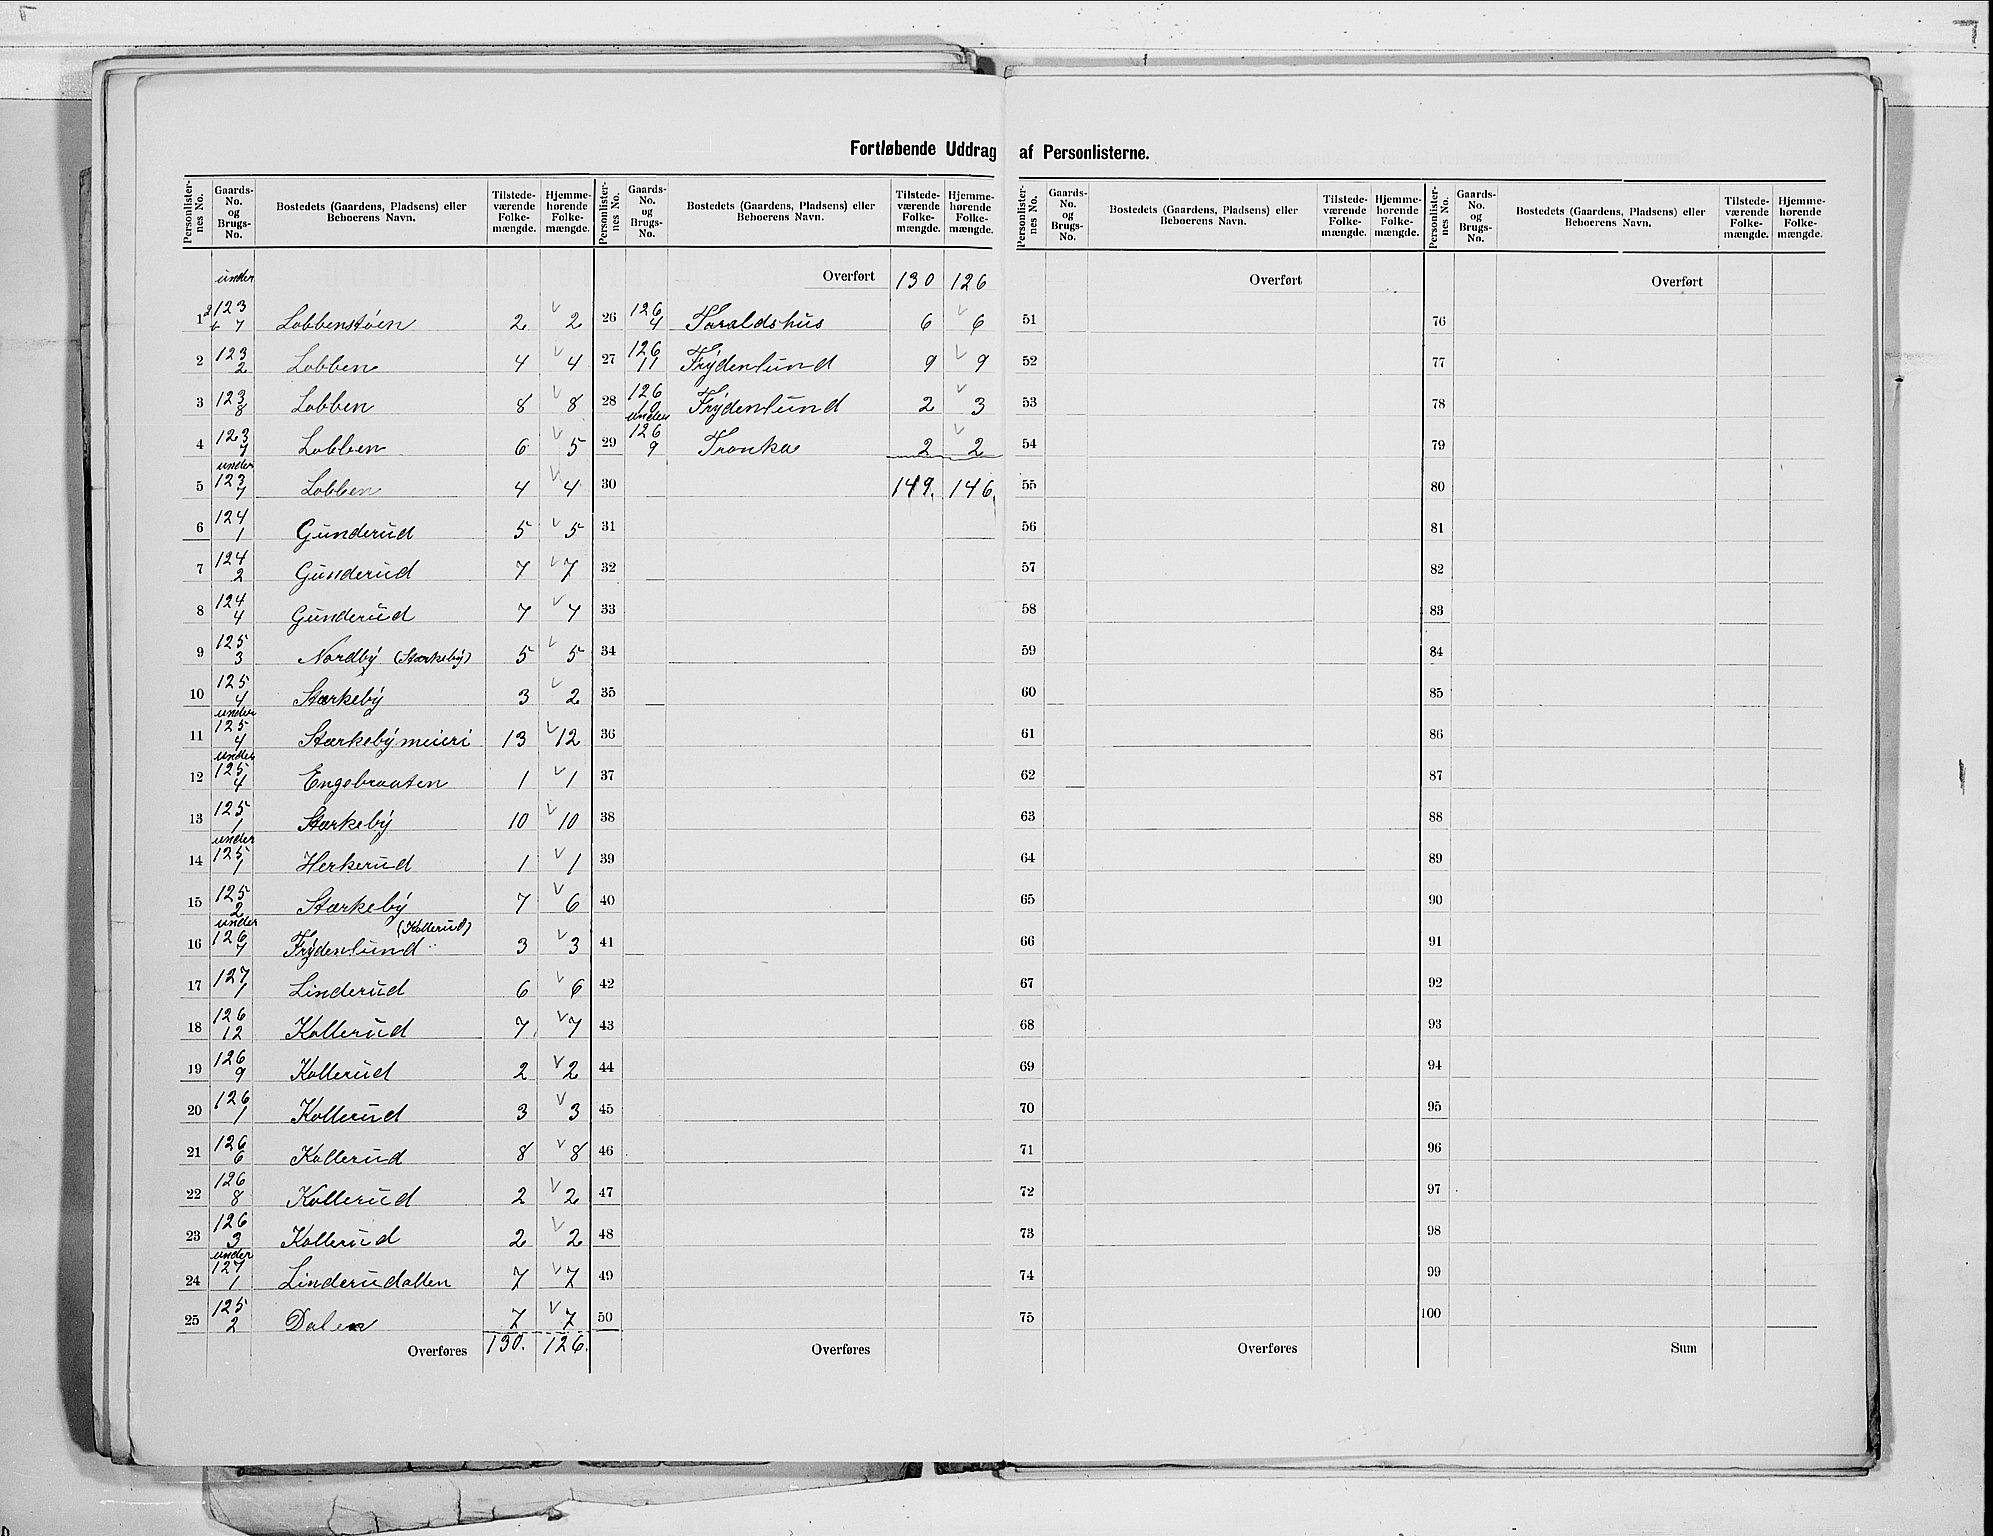 Fortløbende Uddrag af Personlisterne.
Personlisternes No. | Gaards-No. og Brugs-No. | Bostedets (Gaardens, Pladsens) eller Beboerens Navn. | Tilstedeværende Folkemængde. | Hjemmehørende Folkemængde.
under
1 123 7 Lobbenstøen 2 2
2 123 2 Lobben 4 4
3 123 8 Lobben 8 8
4 123 7 Lobben 6 5
under
5 123 7 Lobben 4 4
6 124 1 Gunderud 5 5
7 124 2 Gunderud 7 7
8 124 4 Gunderud 7 7
9 125 3 Nordby (Stærkeby) 5 5
10 125 4 Stærkeby 3 2
under
11 125 4 Stærkeby meieri 13 12
under
12 125 4 Engebraaten 1 1
13 125 1 Stærkeby 10 10
under
14 125 1 Herkerud 1 1
15 125 2 Stærkeby 7 6
under
16 126 7 Frydenlund (Kollerud) 3 3
17 127 1 Linderud 6 6
18 126 12 Kollerud 7 7
19 126 9 Kollerud 2 2
20 126 1 Kollerud 3 3
21 126 6 Kollerud 8 8
22 126 8 Kollerud 2 2
23 126 3 Kollerud 2 2
under
24 127 1 Linderudalten 7 7
25 125 2 Dalen 7 7
Overføres 130. 126.
Personlisternes No. | Gaards-No. og Brugs-No. | Bostedets (Gaardens, Pladsens) eller Beboerens Navn. | Tilstedeværende Folkemængde. | Hjemmehørende Folkemængde.
Overført 130 126
26 126 4 Taraldshus 6 6
27 126 11 Frydenlund 9 9
28 126 Frydenlund 2 3
under
29 126 9 Tronka 2 2
30 149. 146.
31
32
33
34
35
36
37
38
39
40
41
42
43
44
45
46
47
48
49
50
Overføres
Personlisternes No. | Gaards-No. og Brugs-No. | Bostedets (Gaardens, Pladsens) eller Beboerens Navn. | Tilstedeværende Folkemængde. | Hjemmehørende Folkemængde.
Overført
51
52
53
54
55
56
57
58
59
60
61
62
63
64
65
66
67
68
69
70
71
72
73
74
75
Overføres
Personlisternes No. | Gaards-No. og Brugs-No. | Bostedets (Gaardens, Pladsens) eller Beboerens Navn. | Tilstedeværende Folkemængde. | Hjemmehørende Folkemængde.
Overført
76
77
78
79
80
81
82
83
84
85
86
87
88
89
90
91
92
93
94
95
96
97
98
99
100
Sum